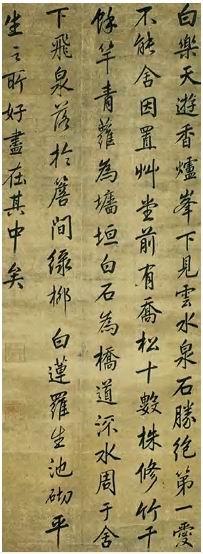 白樂天遊香爐峯下見雲水泉石勝絕第一愛
不能舍因置艸堂前有喬松十數株修竹千
餘竿青蘿為墻垣白石為橋道流水周于舍
下飛泉落於簷間綠栁白蓮羅生池砌平
生之所好盡在其中矣